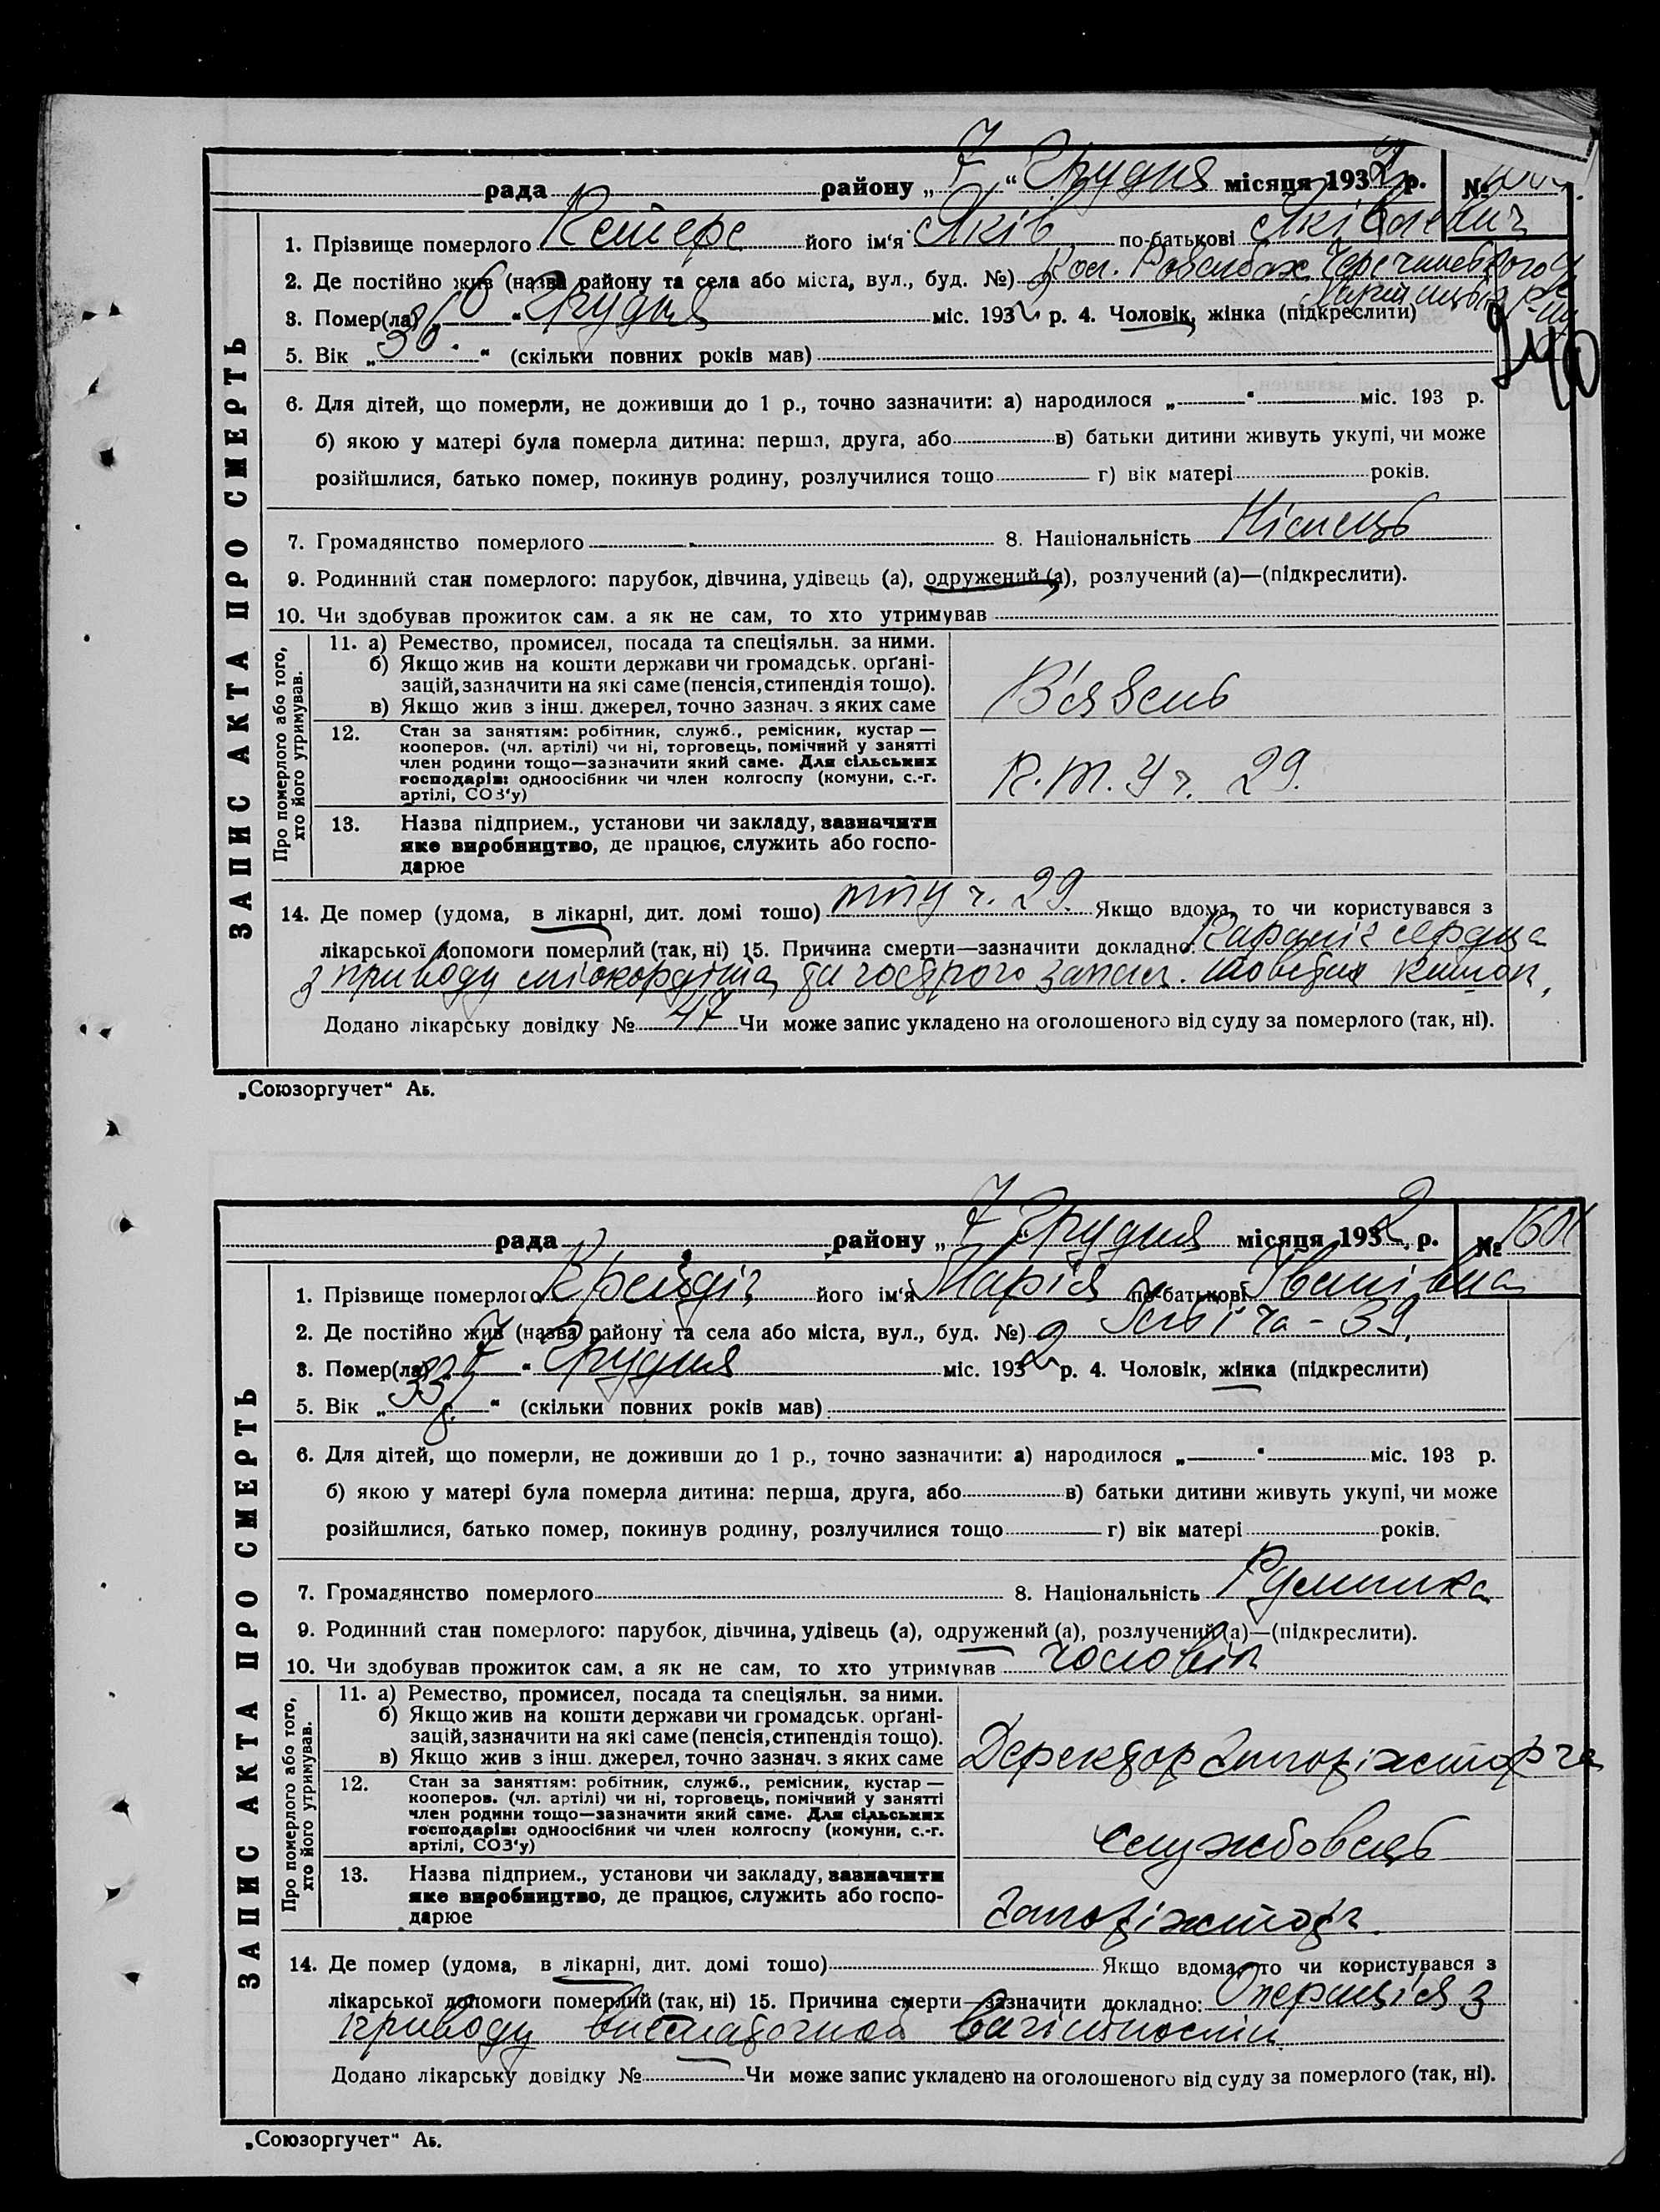 рада районУ „ 7 “ Грудня місяця 1932 р. №
1. Прізвище померлого його ім‘я Яків по-батькові Яківович
2. Де постійно жив (назва району та села або міста, вул., буд. №) Кол.
3. Помер(ла) „ 6 “ Грудня міс. 1932 р. 4. Чоловік, жінка (підкреслити)
5. Вік „ 36 “ (скільки повних років мав)
6. Для дітей, що померли, не доживши до 1 р., точно зазначити: а) народилося „ “ міс. 193 р.
б) якою у матері була померла дитина: перша, друга, або в) батьки дитини живуть укупі, чи може
розійшлися, батько помер, покинув родину, розлучилися тощо г) вік матері років.
7. Громадянство померлого 8. Національність Німець
9. Родинний стан померлого: парубок, дівчина, удівець (а), одружений (а), розлучений (а)—(підкреслити).
10. Чи здобував прожиток сам. а як не сам, то хто утримував
ЗАПИС АКТА ПРО СМЕРТЬ
Про померлого або того,
хто його утримував.
11. а) Ремество, промисел, посада та спеціяльн. за ними.
б) Якщо жив на кошти держави чи громадськ. орґані-
зацій, зазначити на які саме (пенсія, стипендія тощо).
в) Якщо жив з інш. джерел, точно зазнач. з яких саме
В'язень
12. Стан за заняттям: робітник, служб., ремісник, кустар —
кооперов. (чл. артілі) чи ні, торговець, помічний у занятті
член родини тощо—зазначити який саме. Для сільських
господарів: одноосібник чи член колгоспу (комуни, с.-г.
артілі, СОЗ‘у)
ч. 29.
13. Назва підприєм., установи чи закладу, зазначити
яке виробництво, де працює, служить або госпо-
дарює
14. Де помер (удома, в лікарні, дит. домі тошо) ч. 29. Якщо вдома, то чи користувався з
лікарської допомоги померлий (так, ні) 15. Причина смерти—зазначити докладно: серця
з приводу міокардіта та гострого запал. товстих кишок,
Додано лікарську довідку № 47 Чи може запис укладено на оголошеного від суду за померлого (так, ні).
„Союзоргучет“ Аь.
рада району „ 7 “ Грудня місяця 1932 р. № 1601
1. Прізвище померлого його ім‘я Марія по-батькові Іванівна
2. Де постійно жив (назва району та села або міста, вул., буд. №) Ілліча - 39,
3. Помер(ла) „ 7 “ Грудня міс. 1932 р. 4. Чоловік, жінка (підкреслити)
5. Вік „ 33 р. “ (скільки повних років мав)
6. Для дітей, що померли, не доживши до 1 р., точно зазначити: а) народилося „ “ міс. 193 р.
б) якою у матері була померла дитина: перша, друга, або в) батьки дитини живуть укупі, чи може
розійшлися, батько помер, покинув родину, розлучилися тощо г) вік матері років.
7. Громадянство померлого 8. Національність Руминка
9. Родинний стан померлого: парубок, дівчина, удівець (а), одружений (а), розлучений (а)—(підкреслити).
10. Чи здобував прожиток сам, а як не сам, то хто утримував чоловік
ЗАПИС АКТА ПРО СМЕРТЬ
Про померлого або того,
хто його утримував.
11. а) Ремество, промисел, посада та спеціяльн. за ними.
б) Якщо жив на кошти держави чи громадськ. орґані-
зацій, зазначити на які саме (пенсія, стипендія тощо).
в) Якщо жив з інш. джерел, точно зазнач. з яких саме
Деректор
12. Стан за заняттям: робітник, служб., ремісник, кустар —
кооперов. (чл. артілі) чи ні, торговець, помічний у занятті
член родини тощо—зазначити який саме. Для сільських
господарів: одноосібник чи член колгоспу (комуни, с.-г.
артілі, СОЗ‘у)
службовець
13. Назва підприєм., установи чи закладу, зазначити
яке виробництво, де працює, служить або госпо-
дарює
14. Де помер (удома, в лікарні, дит. домі тошо) Якщо вдома, то чи користувався з
лікарської допомоги померлий (так, ні) 15. Причина смерти—зазначити докладно: Операція з
приводу вагітности
Додано лікарську довідку № Чи може запис укладено на оголошеного від суду за померлого (так, ні).
„Союзоргучет“ Аь.